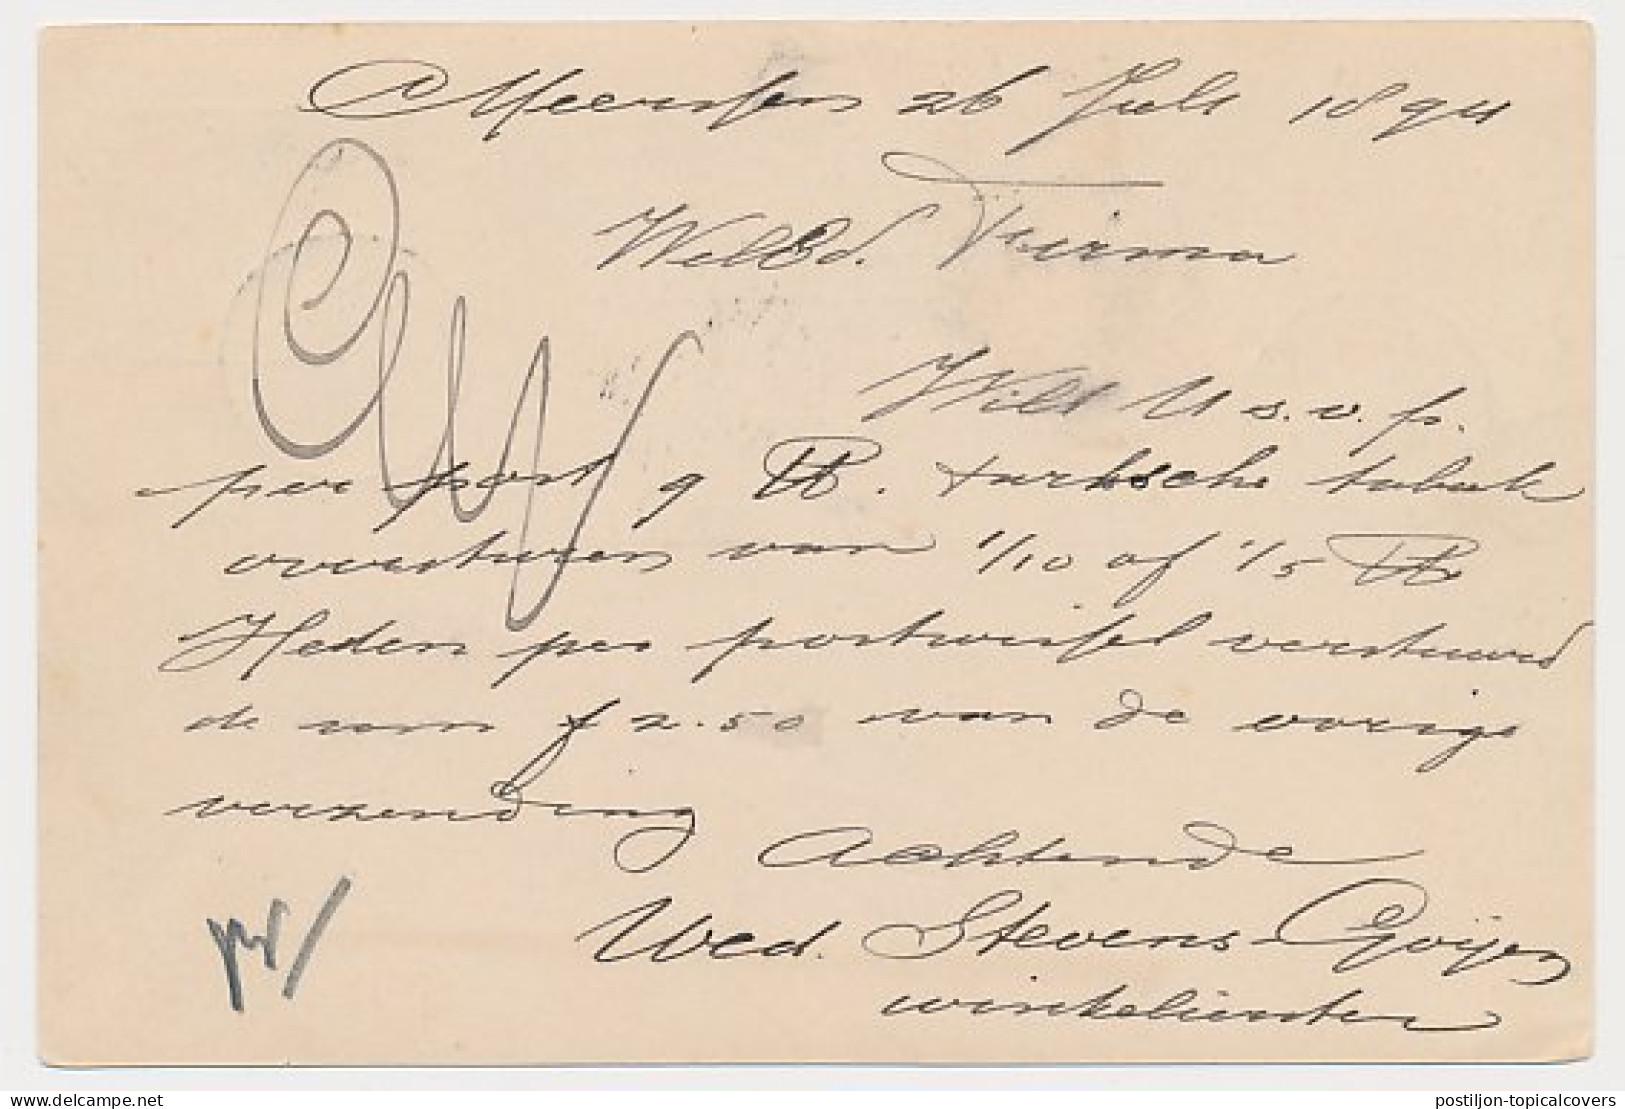 Meerssen 26 Juli 1894
WelEd. Firma
Wilt U s.v.p.
per post 9 ℔. turksche tabak
oversturen van 1/10 of 1/5 ℔
Heden per postwissel verstuurd
de som f 2.50 van de vorige
verzending
Achtend
Wed. Stevens-Goijen
winkelierster
www.delcampe.net
postiljon-topicalcovers